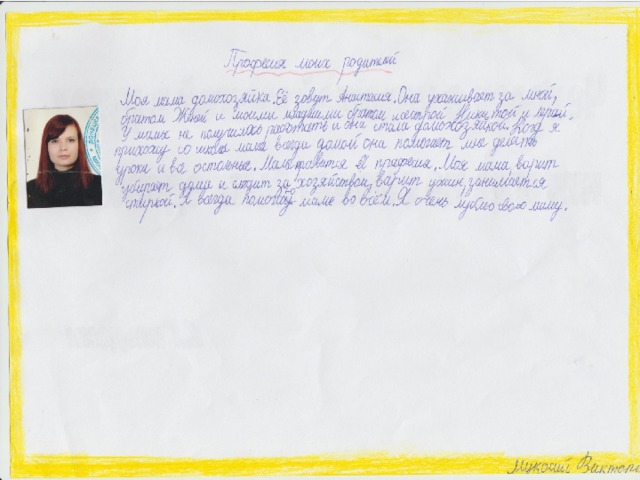 Професия моих родителей
Моя мама домохозяйка. Её зовут Анастасия. Она ухаживает за мной,
братом Женей и моими младшими братом и сестрой Никитой и
У мамы не получилось работать и она стала домохозяйкой. Когд я
прихожу со школы мама всегда дома и она помогает мне делать
уроки и всё остольные. Маме нравится её професия. Моя мама варит
убирает дома и следит за хозяйством, варит ужин, занимается
стиркой. Я всегда помогаю маме во всём. Я очень люблю свою маму.